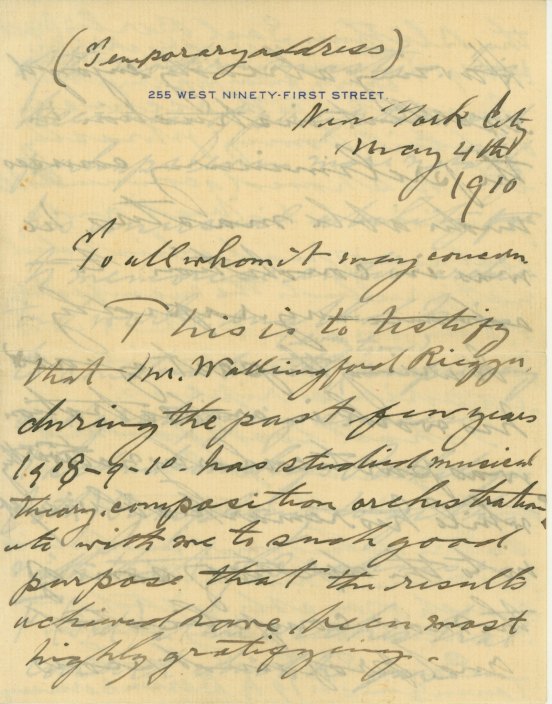 (Temporary address)
255 WEST NINETY-FIRST STREET.
New York City
May 4th
1910
To all whom it may concern
This is to testify
that Mr. Wallingford Riegger,
during the past few years
1908-9-10. has studied musical
theory, composition orchestration
etc with me to such good
purpose that the results
achieved have been most
highly gratifying.